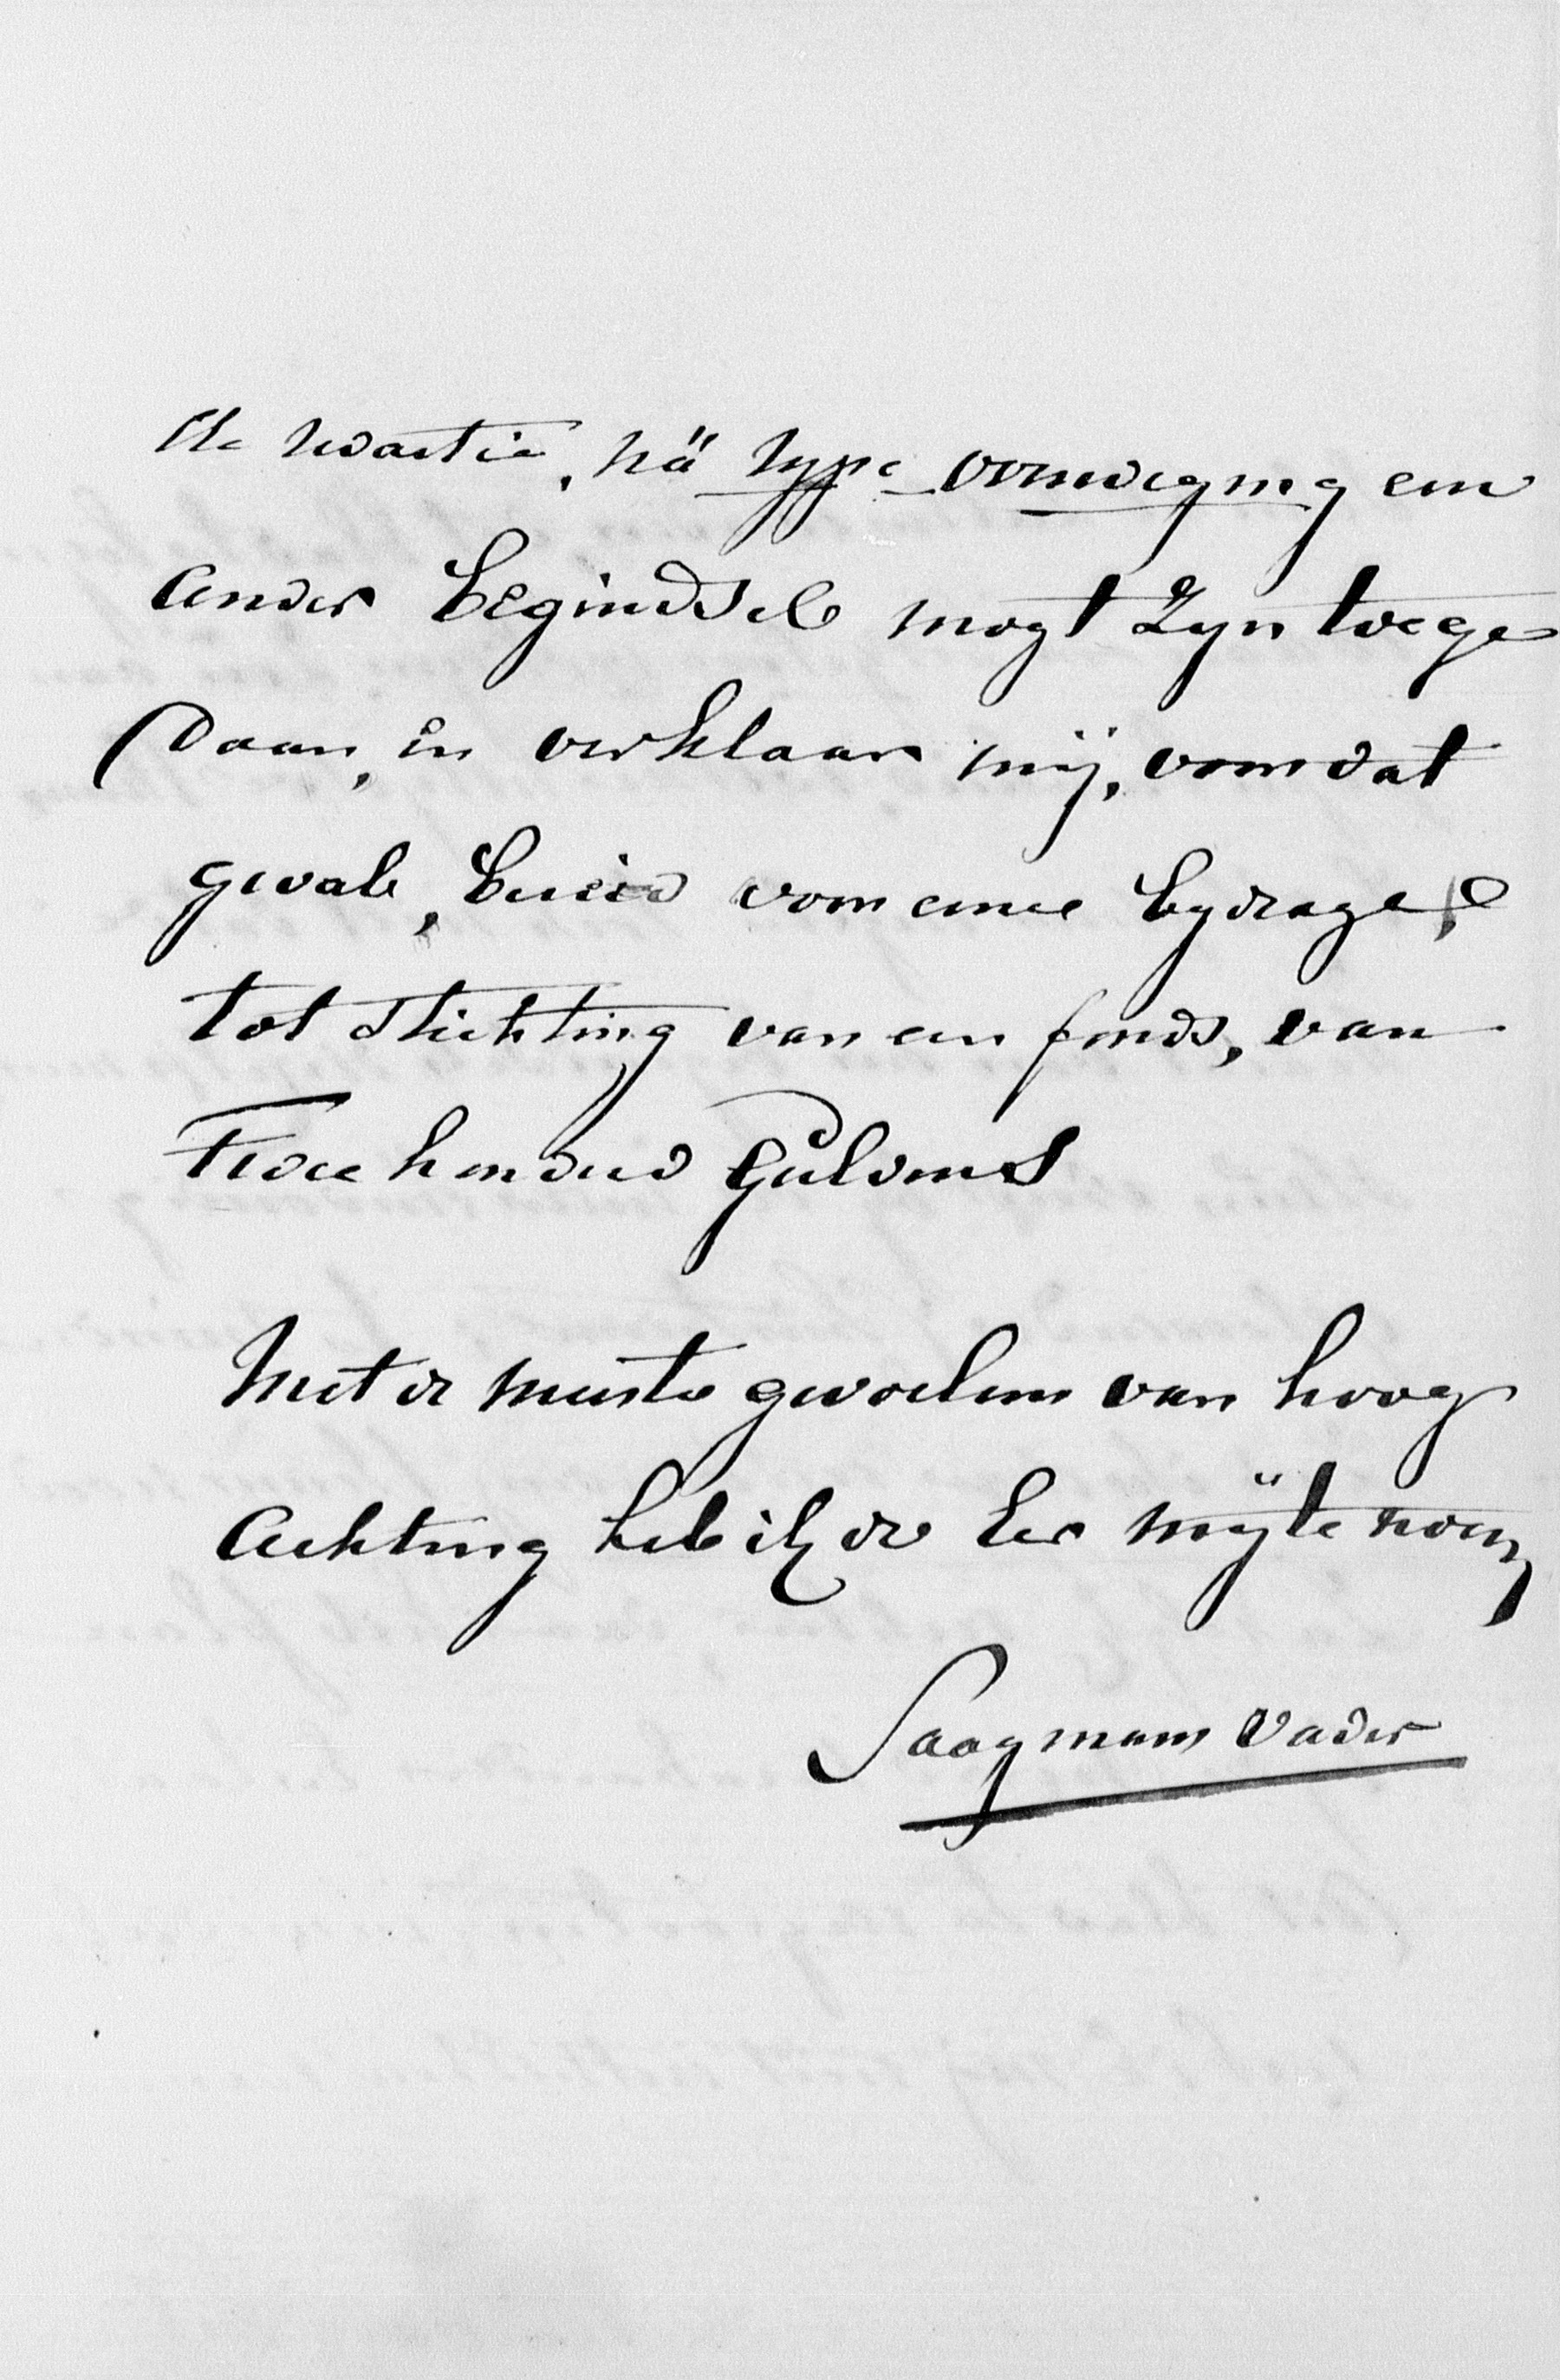 de redactie, ná rype overweging een
ander beginsel mogt zyn toege
daan, en verklaar mij, voor dat
geval, bereid voor eene bydrage,
tot stichting van een fonds, van
Twee honderd Guldens
Met de meeste gevoelens van hoog
achting heb ik de Eer mij te noem
Saagmans Vader